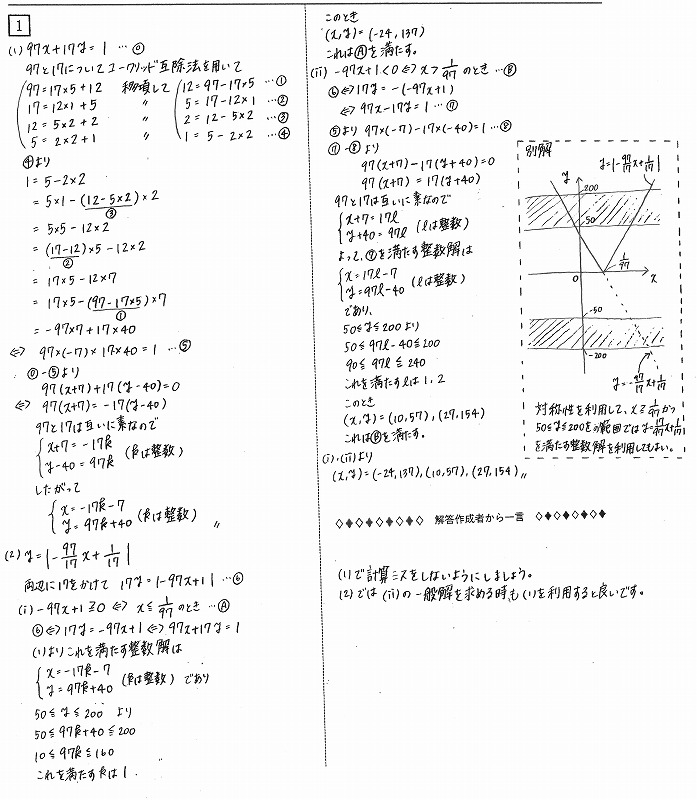 1
(1) 97x+17y=1 …⓪
97と17についてユークリッド互除法を用いて
97=17×5+12 移項して 12=97-17×5 …①
17=12×1+5 〃 5=17-12×1 …②
12=5×2+2 〃 2=12-5×2 …③
5=2×2+1 〃 1=5-2×2 …④
④より
1=5-2×2
=5×1-(12-5×2)×2
③
=5×5-12×2
=(17-12)×5-12×2
②
=17×5-12×7
=17×5-(97-17×5)×7
①
=-97×7+17×40
⇔ 97×(-7)×17×40=1 …⑤
⓪-⑤より
97(x+7)+17(y-40)=0
⇔ 97(x+7)=-17(y-40)
97と17は互いに素なので
x+7=-17k
y-40=97k (kは整数)
したがって
x=-17k-7
y=97k+40 (kは整数) 〃
(2) y=|-97/17 x+1/17|
両辺に17をかけて 17y=|-97x+1| …⑥
(i) -97x+1≧0 ⇔ x≦1/97 のとき …Ⓐ
⑥⇔17y=-97x+1⇔97x+17y=1
(1)よりこれを満たす整数解は
x=-17k-7
y=97k+40 (kは整数) であり
50≦y≦200 より
50≦97k+40≦200
10≦97k≦160
これを満たすkは1.
このとき
(x,y)=(-24,137)
これはⒶを満たす。
(ii) -97x+1<0⇔x>1/97 のとき …Ⓑ
⑥⇔17y=-(-97x+1)
⇔97x-17y=1 …⑦
⑤より 97×(-7)-17×(-40)=1 …⑧
⑦-⑧より
97(x+7)-17(y+40)=0
97(x+7)=17(y+40)
97と17は互いに素なので
x+7=17l
y+40=97l (lは整数)
よって、⑦を満たす整数解は
x=17l-7
y=97l-40 (lは整数)
であり、
50≦y≦200より
50≦97l-40≦200
90≦97l≦240
これを満たすlは1,2
このとき
(x,y)=(10,57),(27,154)
これはⒷを満たす。
(i),(ii)より
(x,y)=(-24,137),(10,57),(27,154)〃
別解
y=|-97/17 x+1/17|
y
200
50
1/97
0
x
-50
-200
y=-97/17 x+1/17
対称性を利用して、x≧1/97かつ
50≦y≦200をの範囲ではy=-17/97 x+1/17
を満たす整数解を利用してもよい。
◇◆◇◆◇◆◇◆◇ 解答作成者から一言 ◇◆◇◆◇◆◇◆
(1)で計算ミスをしないようにしましょう。
(2)では(ii)の一般解を求める時も(1)を利用すると良いです。